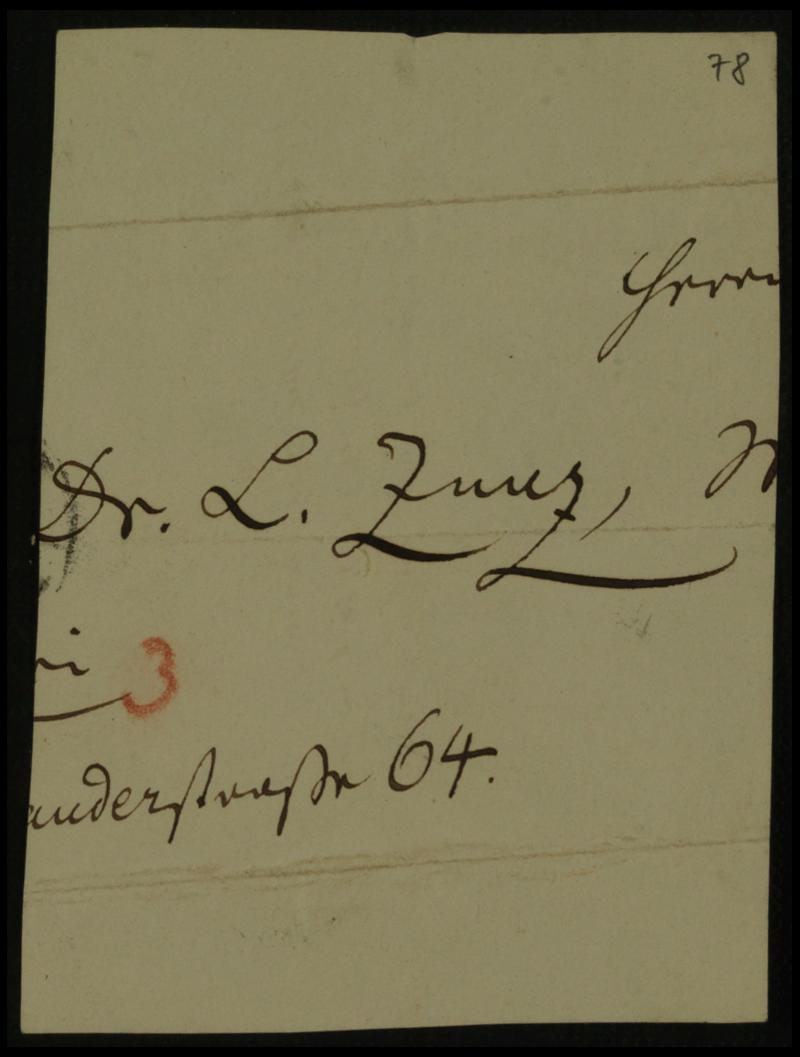 78
Herrn
Dr. L. Zunz,
3
anderstraße 64.